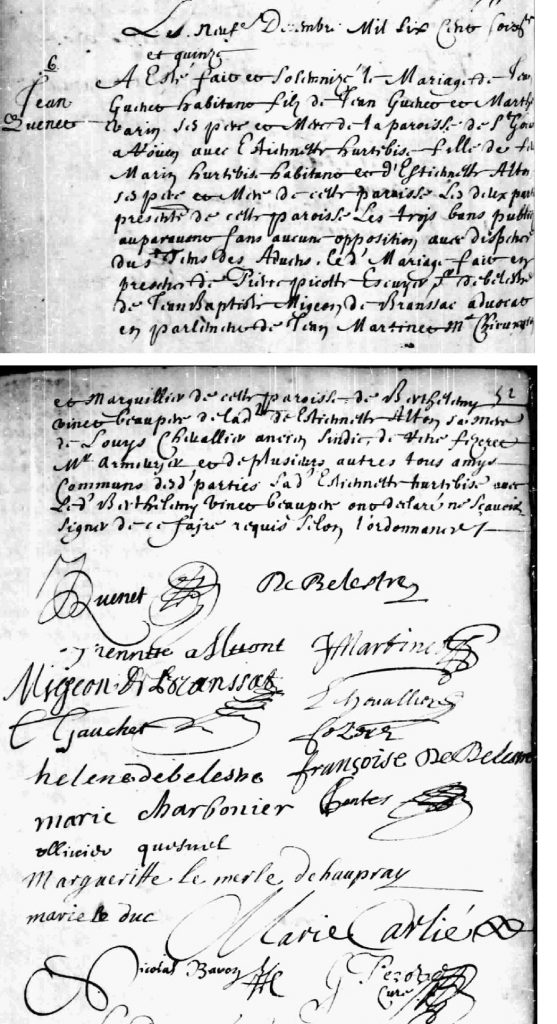 Le Neufe Decembre Mil six Cent soix
et quinze
6
A Esté fait et solemnizé le Mariage de Jean
Jean
Quenet habitant filz de Jean Quenet et Marthe
Quenet
Varin ses pere et Mere de la paroisse de St
a Roüen avec Estiennette hurtebise fille de
Marin hurtebise habitant et d'Estiennette Alton
ses pere et Mere de cette paroisse Les deux part
de cette paroisse Les trois bans publi
auparavant sans aucune opposition avec dispence
du st Tems des Advens, led' Mariage fait en
presence de Pierre picotte Escuyer sr debelestre
de Jean Baptiste Migeon de Branssac advocat
en parlement de Jean Martinet Me Chirurgien
et Marguillier de cette paroisse de Berthelemy
52
vinet beaupere de lad' de Estiennette Alton sa mere
de Louys Chevallier ancien sindic de René fezeret
Me Armeurier et de plusieurs autres tous amys
Communs desd' parties Lad' Estiennette hurtebise avec
Led' Berthelemy vinet beaupere ont declaré ne sçavoir
signer de ce faire requis selon l'ordonnance
Quenet De Belestre
JMartinet
Migeon De Branssat
LChevallier
Gauchet
helene debelestre françoise De Belestre
marie charbonier
ollivier quesnel
Margueritte le merle dehaupray
marie le duc
Marie Carlié
Nicolas G Perot
Curé